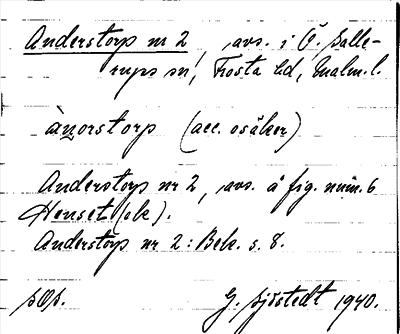 Anderstorp nr 2, avs. i Ö. Salle-
rups sn, Frosta hd, Malm. l.
ànorstorp (acc. osäker)
Anderstorp nr 2, avs. å fig. num. 6
Henset (ek).
Anderstorp nr 2: Bek. s. 8.
sOs. G. Sjöstedt 1940.